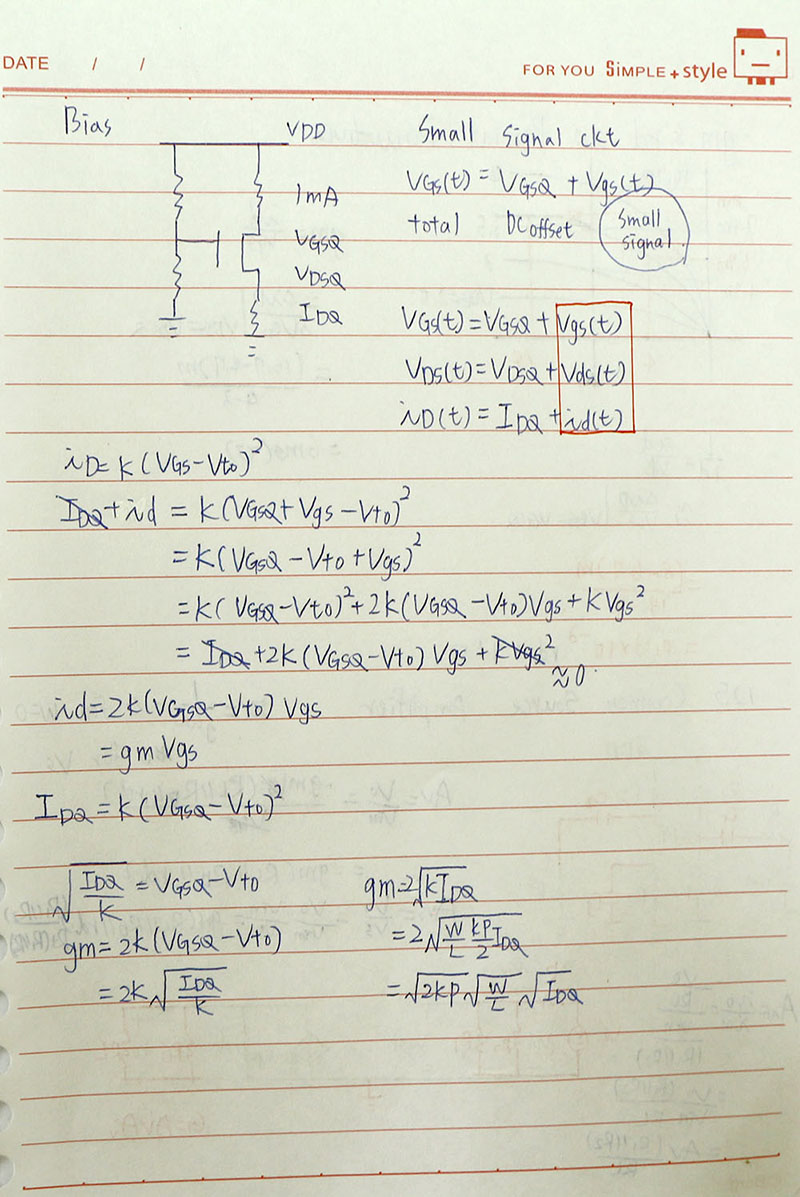 DATE / /
FOR YOU SIMPLE + style
Bias
VDD
1mA
VGSQ
VDSQ
IDQ
Small Signal ckt
VGS(t) = VGSQ + Vgs(t)
total DC offset small signal
VGS(t) = VGSQ + Vgs(t)
VDS(t) = VDSQ + Vds(t)
iD(t) = IDQ + id(t)
iD = K(VGS-Vto)²
IDQ + id = K(VGSQ + Vgs - Vto)²
= K(VGSQ - Vto + Vgs)²
= K(VGSQ - Vto)² + 2K(VGSQ - Vto)Vgs + KVgs²
= IDQ + 2K(VGSQ - Vto)Vgs + KVgs² ≈ 0
id = 2K(VGSQ - Vto) Vgs
= gm Vgs
IDQ = K(VGSQ - Vto)²
√(IDQ/K) = VGSQ - Vto
gm = 2K(VGSQ - Vto)
= 2K √(IDQ/K)
gm = 2√(KIDQ)
= 2√(W/L KP/2 IDQ)
= √(2KP) √(W/L) √IDQ